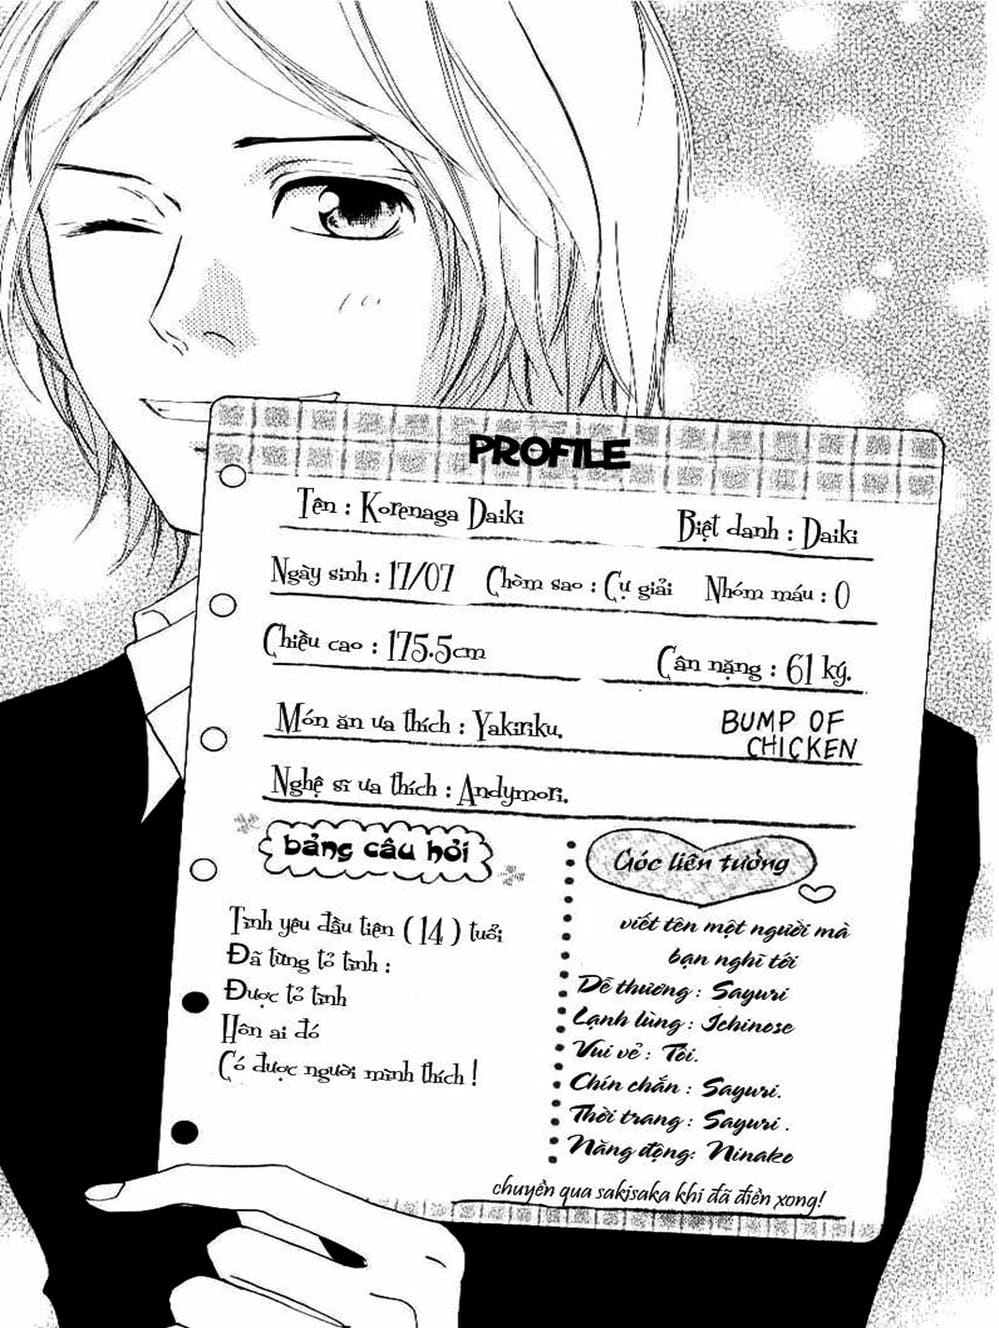 PROFILE
Tên : Korenaga Daiki
Biệt danh : Daiki
Ngày sinh : 17/07 Chòm sao : Cự giải Nhóm máu : O
Chiều cao : 175.5cm
Cân nặng : 61 ký.
Món ăn ưa thích : Yakiriku.
BUMP OF
CHICKEN
Nghệ sĩ ưa thích : Andymori.
bảng câu hỏi
Tình yêu đầu tiên ( 14 ) tuổi
Đã từng tỏ tình :
Được tỏ tình
Hôn ai đó
Có được người mình thích !
Góc liên tưởng
viết tên một người mà
bạn nghĩ tới
Dễ thương : Sayuri
Lạnh lùng : Ichinose
Vui vẻ : Tôi.
Chín chắn : Sayuri.
Thời trang : Sayuri .
Năng động: Ninako
chuyền qua sakisaka khi đã điền xong!